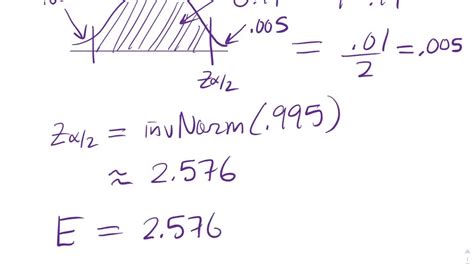 .005
= .01/2 = .005
Zα/2
Zα/2 = invNorm(.995)
≈ 2.576
E = 2.576